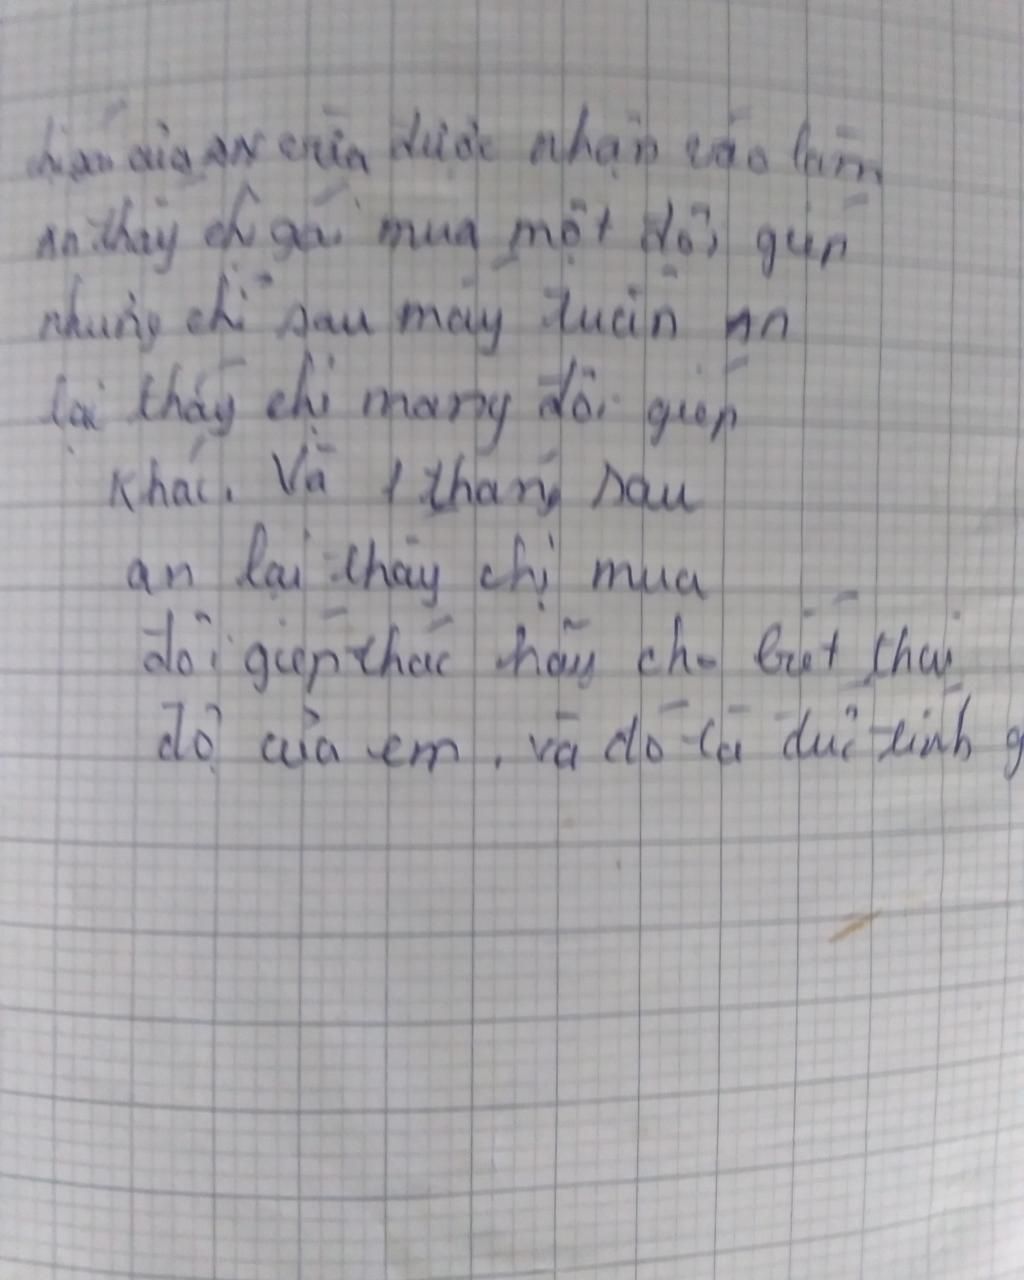 của an vừa được nhận vào làm
an thấy chị gái mua một đôi giép
nhưng chỉ sau mấy tuần an
lại thấy chị mang đôi giép
khác. Và 1 tháng sau
an lại thấy chị mua
đôi giép khác hãy cho biết thái
độ của em. và đó là đức tính g